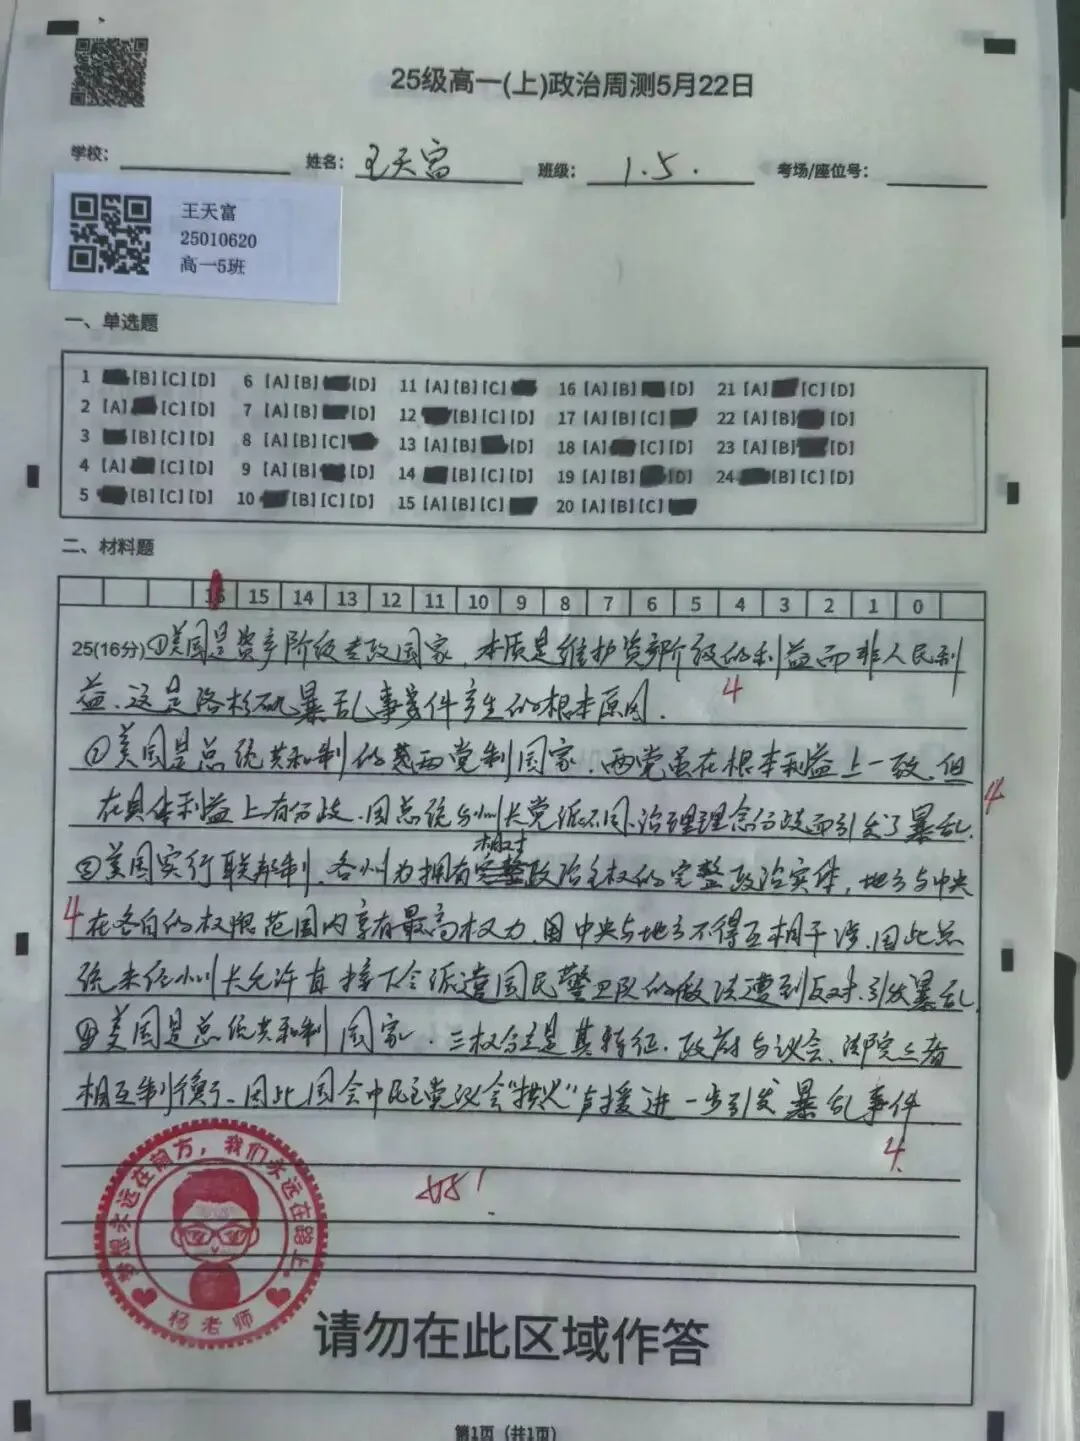 25级高一(上)政治周测5月22日
学校： 姓名：王天富 班级：1.5. 考场/座位号：
王天富
25010620
高一5班
一、单选题
1 [B][C][D] 6 [A][B] [D] 11 [A][B][C] 16 [A][B] [D] 21 [A] [C][D]
2 [A] [C][D] 7 [A][B] [D] 12 [B][C][D] 17 [A][B][C] 22 [A][B] [D]
3 [B][C][D] 8 [A][B][C] 13 [A][B] [D] 18 [A] [C][D] 23 [A][B] [D]
4 [A] [C][D] 9 [A][B] [D] 14 [B][C][D] 19 [A][B] [D] 24 [B][C][D]
5 [B][C][D] 10 [B][C][D] 15 [A][B][C] 20 [A][B][C]
二、材料题
16 15 14 13 12 11 10 9 8 7 6 5 4 3 2 1 0
25(16分)①美国是资产阶级专政国家，本质是维护资产阶级的利益而非人民利
益，这是洛杉矶暴乱事件产生的根本原因．
4
②美国是总统共和制的两党制国家．两党虽在根本利益上一致，但
在具体利益上有分歧．因总统与州长党派不同、治理理念分歧而引发了暴乱．
4
相对
③美国实行联邦制，各州为拥有完整政治主权的完整政治实体，地方与中央
4 在各自的权限范围内享有最高权力，中央与地方不得互相干涉．因此总
统未经州长允许直接下令派遣国民警卫队的做法遭到反对，引发暴乱
④美国是总统共和制国家．三权分立是其特征．政府与议会、法院三者
相互制衡、因此国会中民主党议会“拱火”声援进一步引发暴乱事件
4
好！
梦想永远在前方，我们永远在路上
杨老师
请勿在此区域作答
第1页（共1页）